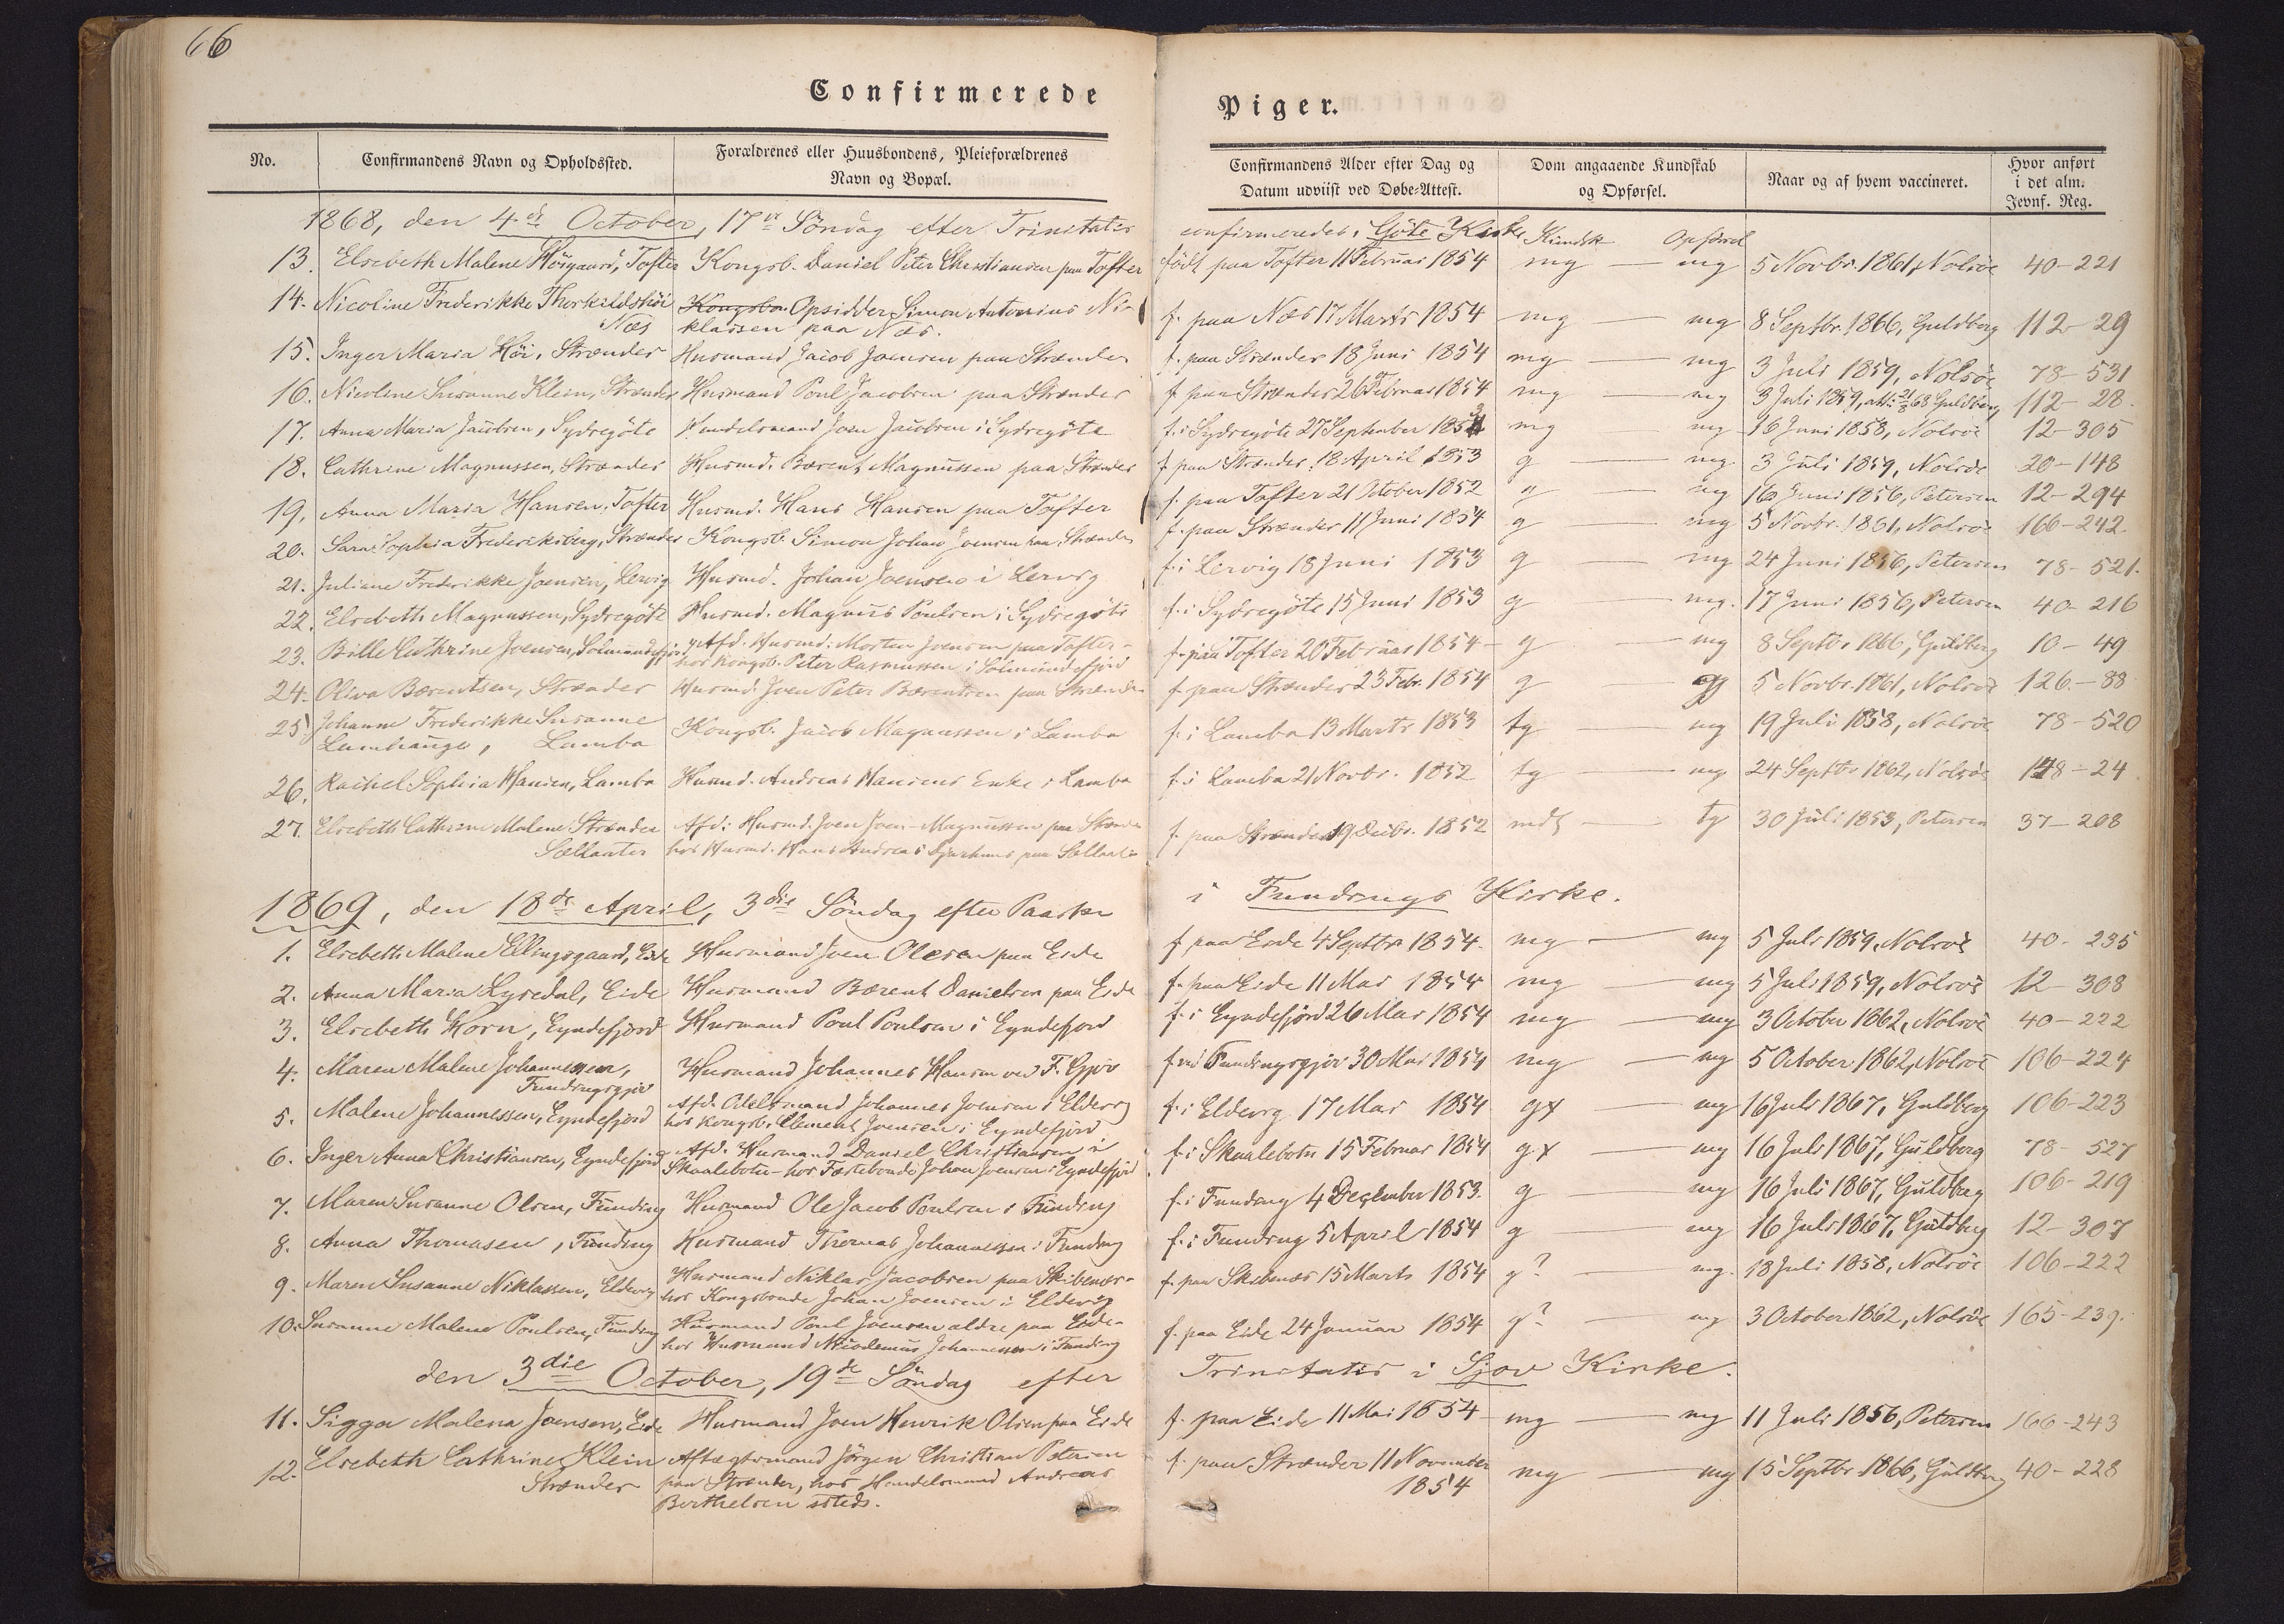 66
Confirmerede Piger.
No. Confirmandens Navn og Opholdssted. Forældrenes eller Huusbondens, Pleieforældrenes Navn og Bopæl. Confirmandens Alder efter Dag og Datum udviist ved Døbe-Attest. Dom angaaende Kundskab og Opførsel. Naar og af hvem vaccineret. Hvor anført i det alm. Jevnf. Reg.
1868, den 4de October, 17de Söndag efter Trinitatis confirmeredes i Göte Kirke Kundsk Opförsel
13. Elsebeth Malene Höigaard, Tofter Kongsb. Daniel Peter Christiansen paa Tofter född paa Tofter 11 Februar 1854 mg — mg 5 Novbr. 1861, Nolsöe 40-221
14. Nicoline Frederikke Thorkildshöi Kongsbon Opsidder Simon Antonius Ni-
Næs klassen paa Næs. f. paa Næs 17 Marts 1854 mg — mg 8 Septbr. 1866, Guldberg 112-29
15. Inger Maria Höi, Strænder Husmand Jacob Joensen paa Strænder f. paa Strænder 18 Juni 1854 mg — mg 3 Juli 1859, Nolsöe 78-531
16. Nicoline Susanne Klein, Strænder Husmand Poul Jacobsen paa Strænder f paa Strænder 26 Februar 1854 mg — mg 3 Juli 1859, att: 21/8 68 Guldberg 112-28.
17. Anna Maria Jacobsen, Sydregöte Handelsmand Joen Jacobsen i Sydregöte f. i Sydregöte 27 September 1853 mg mg 16 Juni 1858, Nolsöe 12-305
18. Cathrine Magnussen, Strænder Husmd. Bærent Magnussen paa Strænder f paa Strænder 18 April 1853 g — mg 3 Juli 1859, Nolsöe 20-148
19. Anna Maria Hansen, Tofter Husmd. Hans Hansen paa Tofter f. paa Tofter 21 October 1852 g — mg 16 Juni 1856, Petersen 12-294
20. Sara Sophia Frederiksberg, Strænder Kongsb. Simon Johan Joensen paa Strænder f. paa Strænder 11 Juni 1854 g — mg 5 Novbr. 1861, Nolsöe 166-242
21. Juliane Frederikke Joensen, Lervig Husmd. Johan Joensen i Lervig f. i Lervig 18 Juni 1853 g — mg 24 Juni 1856, Petersen 78-521.
22. Elsebeth Magnussen, Sydregöte Husmd. Magnus Poulsen i Sydregöte f. i Sydregöte 15 Juni 1853 g — mg. 17 Juni 1856, Petersen 40-216
23. Bille Cathrine Joensen, Solmundefjord Afd. Husmd. Morten Joensen paa Tofter-
hos Kongsb. Peter Rasmussen i Solmundefjörd f. paa Tofter 20 Februar 1854 - g — mg 8 Septbr 1866, Guldberg 10-49
24. Oliva Bærentsen, Strænder Husmd. Joen Peter Bærentsen paa Strænder f. paa Strænder 23 Febr. 1854 g — g 5 Novbr. 1861, Nolsöe 126-88
25. Johanne Frederikke Susanne
Lamhauge, Lamba Kongsb. Jacob Magnussen i Lamba f. i Lamba 13 Marts 1853 tg — mg 19 Juli 1858, Nolsöe 78-520
26. Rachel Sophia Hansen, Lamba Husmd. Andreas Hansens Enke i Lamba f. i Lamba 21 Novbr. 1852 tg — mg 24 Septbr 1862, Nolsöe 148-24
27. Elsebeth Cathrine Malene Strænder Afd: Husmd. Joen Joen Magnussen paa Strænder
Sellatræ hos Husmd. Hans Andreas f. paa Strænder 19 Decbr. 1852 mdl — tg 30 Juli 1853, Petersen 37-208
1869, den 18de April, 3die Söndag efter Paaske i Fundings Kirke.
1. Elsebeth Malene Ellingsgaard, Eide Husmand Joen Olesen paa Eide f paa Eide 4 Septbr 1854. mg — mg 5 Juli 1859, Nolsöe 40-235
2. Anna Maria Lyredal, Eide Husmand Bærent Danielsen paa Eide f. paa Eide 11 Mai 1854 mg — mg 5 Juli 1859, Nolsöe 12-308
3. Elsebeth Horn, Eyndefjord Husmand Poul Poulsen i Eyndefjord f. i Eyndefjörd 26 Mai 1854 mg — mg 3 October 1862, Nolsöe 40-222
4. Maren Malene Johannessen,
Fundingsgjov Husmand Johannes Hansen ved F. Gjov f. ved Fundingsgjov 30 Mai 1854 mg — mg 5 October 1862, Nolsöe 106-224
5. Malene Johannessen, Eyndefjord Afd. Odelsmand Johannes Joensen i Eldevig
hos Kongsb. Clement Joensen i Eyndefjörd f. i Eldevig 17 Mai 1854 gx — mg 16 Juli 1867, Guldberg 106-223
6. Inger Anna Christiansen, Eyndefjörd Afd. Husmand Daniel Christiansen i
Skaalebotn - hos Fæstebonde Johan Joensen i Eyndefjörd f. i Skaalebotn 15 Februar 1854 gx — mg 16 Juli 1867, Guldberg 78-527
7. Maren Susanne Olsen, Funding Husmand Ole Jacob Poulsen i Funding f. i Funding 4 December 1853. g — mg 16 Juli 1867, Guldberg 106-219
8. Anna Thomasen, Funding Husmand Thomas Johannessen i Funding f. i Funding 5 April 1854 g — mg 16 Juli 1867, Guldberg 12-307
9. Maren Susanne Niklassen, Eldevig Husmand Niklas Jacobsen paa Skibenæs-
hos Kongsbonde Johan Joensen i Eldevig f. paa Skibenæs 15 Marts 1854 g? — mg. 18 Juli 1858, Nolsöe 106-222
10. Susanne Malene Poulsen, Funding Husmand Poul Joensen ældre paa Eide-
hos Husmand Nicodemus Johannessen i Funding f. paa Eide 24 Januar 1854 g? — mg 3 October 1862, Nolsöe 165-239.
den 3die October, 19de Söndag efter Trinitatis i Gjov Kirke.
11. Sigga Malena Joensen, Eide Husmand Joen Henrik Olsen paa Eide f. paa Eide 11 Mai 1854 mg — mg 11 Juli 1856, Petersen 166-243
12. Elsebeth Cathrine Klein Aftægtsmand Jörgen Christian Petersen f. paa Strænder 11 November
Strænder paa Strænder, hos Handelsmand Andreas 1854 mg — mg 15 Septbr 1866, Guldberg 40-228
Berthelsen ssteds.